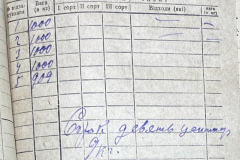 Вага (в кг) I сорт II сорт III сорт Відходи (які) Вага (в кг)
1000
2 1000
3 1000
4 1000
5 909
Сорок девять
9 кг.